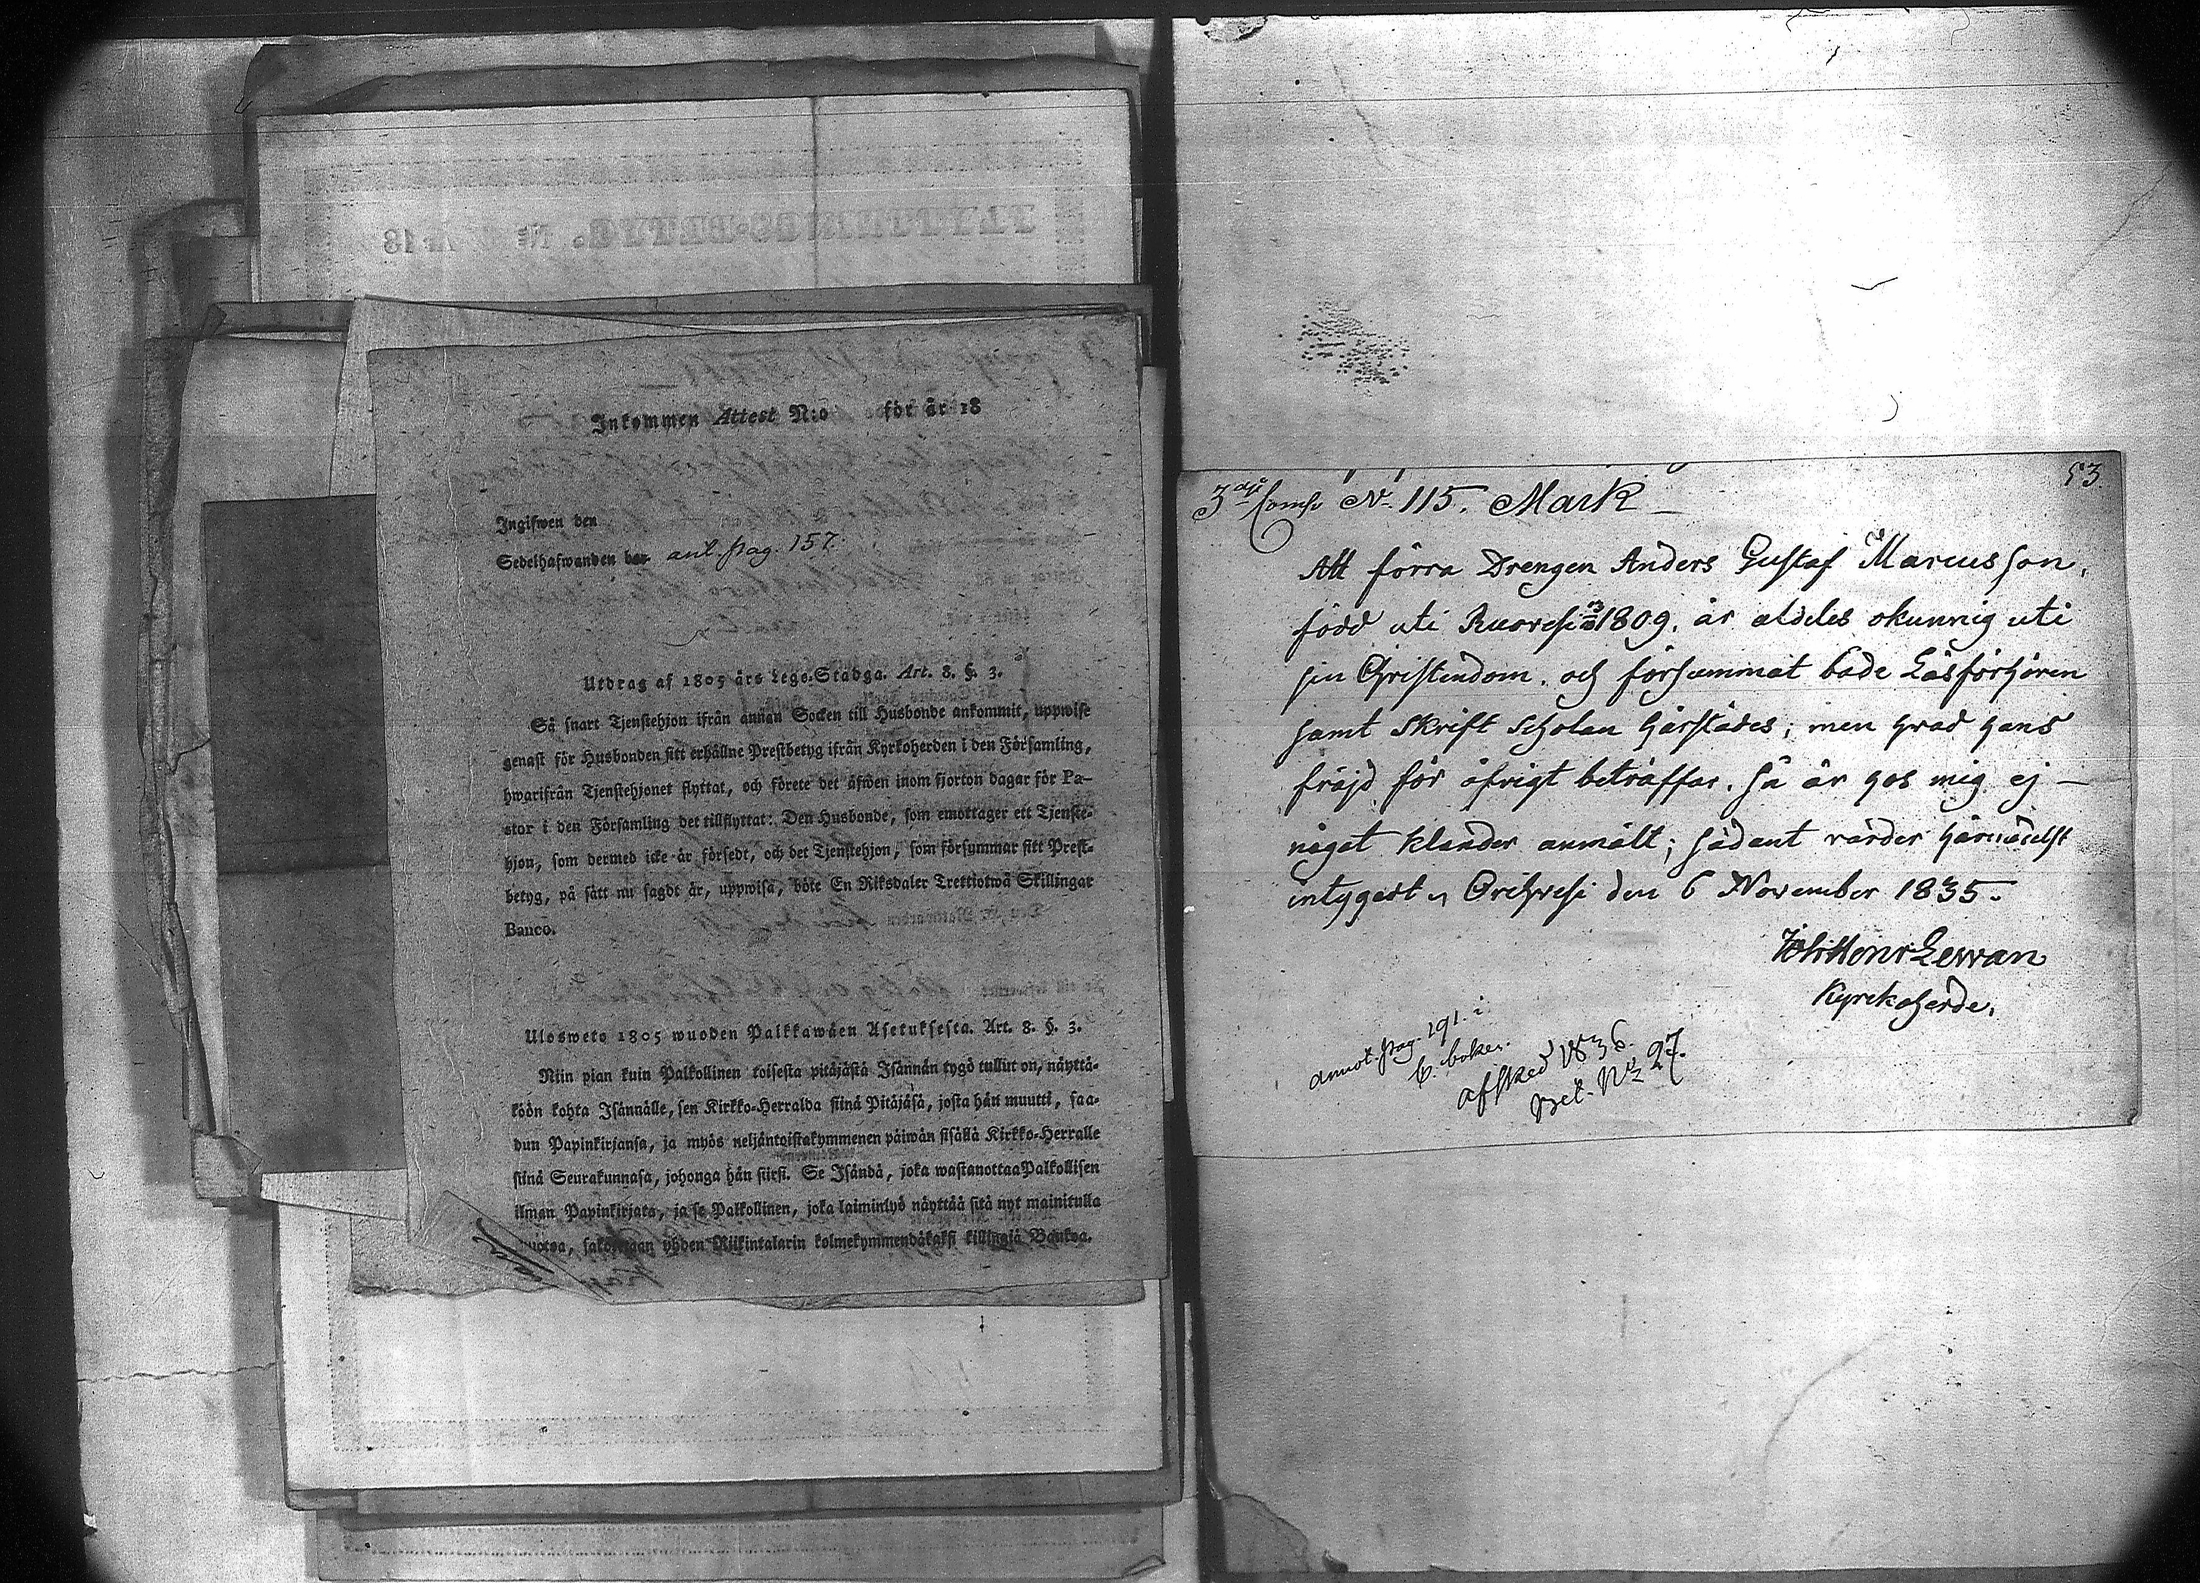 FLYTTNINGS-BETYG. № År 18
Inkommen Attest N:o för år 18
Ingifwen den
Sedelhafwanden bar anl. pag. 157.
Utdrag af 1805 års Lego-Stadga. Art. 8. §. 3.
Så snart Tjenstehjon ifrån annan Socken till Husbonde ankommit, uppwise
genast för Husbonden sitt erhållne Prestbetyg ifrån Kyrkoherden i den Församling,
hwarifrån Tjenstehjonet flyttat, och förete det äfwen inom fjorton dagar för Pa-
stor i den Församling det tillflyttat: Den Husbonde, som emottager ett Tjenste-
hjon, som dermed icke är försedt, och det Tjenstehjon, som försummar sitt Prest-
betyg, på sätt nu sagdt är, uppwisa, böte En Riksdaler Trettiotwå Skillingar
Banco.
Ulosweto 1805 wuoden Palkkawäen Asetuksesta. Art. 8. §. 3.
Niin pian kuin Palkollinen toisesta pitäjästä Isännän tygö tullut on, näyttä-
köön kohta Isännälle, sen Kirkko-Herralda siinä Pitäjäsä, josta hän muutti, saa-
dun Papinkirjansa, ja myös neljäntoistakymmenen päiwän sisällä Kirkko-Herralle
siinä Seurakunnasa, johonga hän siirsi. Se Isändä, joka wastanottaa Palkollisen
ilman Papinkirjata, ja se Palkollinen, joka laiminlyö näyttää sitä nyt mainitulla
yhden Riikintalarin kolmekymmendäkaksi killingiä Bankoa.
53.
3dje Comp. N. 115. Mark
Att förra Drengen Anders Gustaf Marcusson,
född uti Ruovesi 1809, är aldeles okunnig uti
sin Christendom, och försummat både Läsförhören
samt Skrift Scholan härstädes; men hvad hans
fräjd för öfrigt beträffar, så är hos mig ej
något klander anmält; sådant varder härmedelst
intygadt, Orihvesi den 6 November 1835.
Joh. Henr. Lewan
Kyrckoherde.
annot. pag. 191. i
C. boken.
afsked 1836.
bet. No 27.